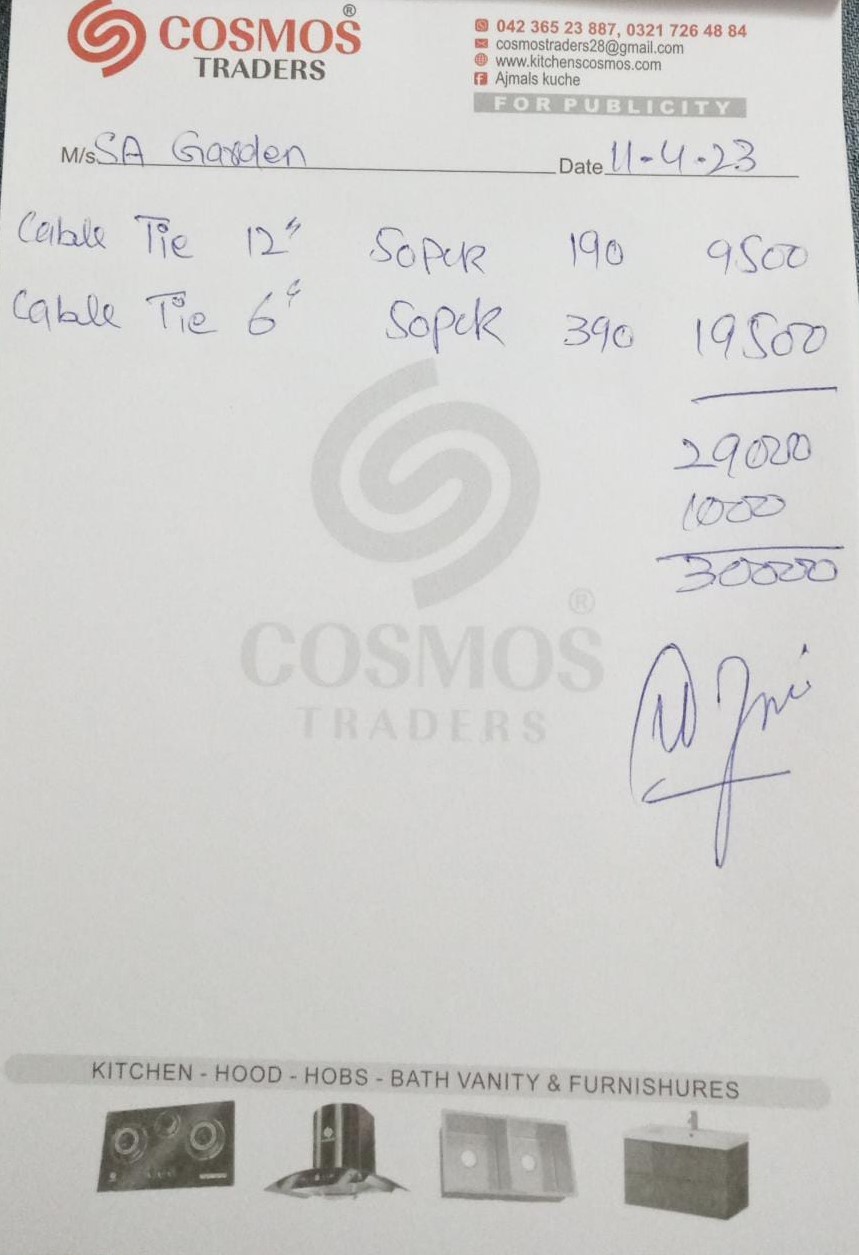 COSMOS ®
TRADERS
042 365 23 887, 0321 726 48 84
cosmostraders28@gmail.com
www.kitchenscosmos.com
Ajmals kuche
FOR PUBLICITY
M/s. SA Garden Date 11-4-23
Cable Tie 12" 50Pck 190 9500
Cable Tie 6" 50Pck 390 19500
29000
1000
30000
®
COSMOS
TRADERS
KITCHEN - HOOD - HOBS - BATH VANITY & FURNISHURES